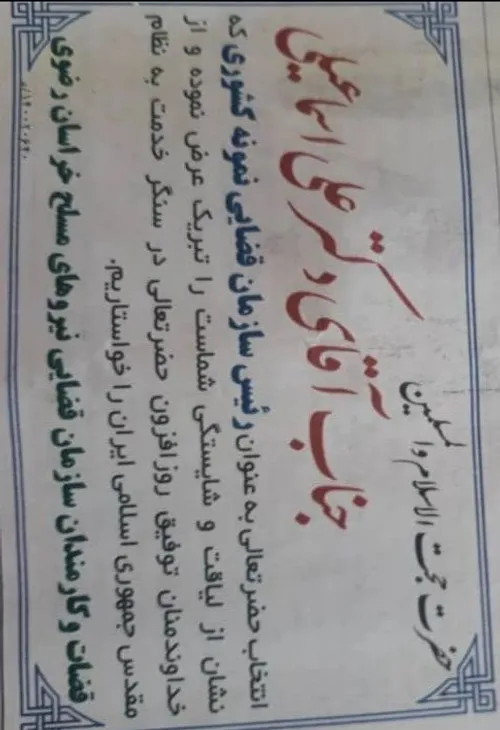 حضرت حجت الاسلام والمسلمین
جناب آقای دکتر علی اسماعیلی
انتخاب حضرتعالی به عنوان رئیس سازمان قضایی نمونه کشوری که
نشان از لیاقت و شایستگی شماست را تبریک عرض نموده و از
خداوندمنان توفیق روز افزون حضرتعالی در سنگر خدمت به نظام
مقدس جمهوری اسلامی ایران را خواستاریم.
قضات و کارمندان سازمان قضایی نیروهای مسلح خراسان رضوی